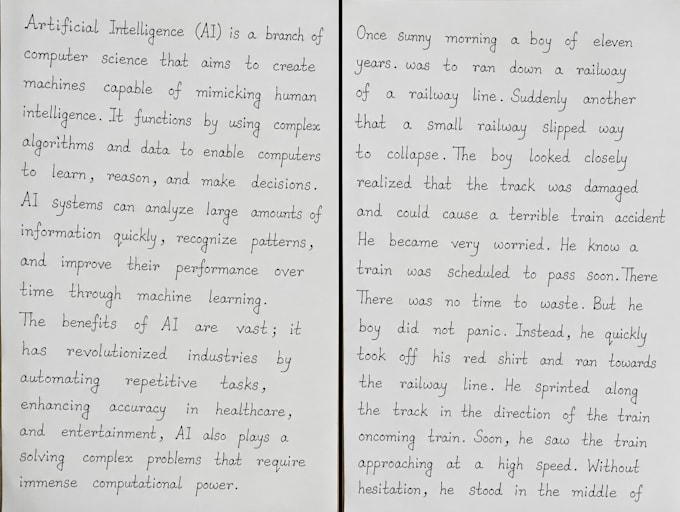 Artificial Intelligence (AI) is a branch of
computer science that aims to create
machines capable of mimicking human
intelligence. It functions by using complex
algorithms and data to enable computers
to learn, reason, and make decisions.
AI systems can analyze large amounts of
information quickly, recognize patterns,
and improve their performance over
time through machine learning.
The benefits of AI are vast; it
has revolutionized industries by
automating repetitive tasks,
enhancing accuracy in healthcare,
and entertainment, AI also plays a
solving complex problems that require
immense computational power.
Once sunny morning a boy of eleven
years. was to ran down a railway
of a railway line. Suddenly another
that a small railway slipped way
to collapse. The boy looked closely
realized that the track was damaged
and could cause a terrible train accident
He became very worried. He know a
train was scheduled to pass soon. There
There was no time to waste. But he
boy did not panic. Instead, he quickly
took off his red shirt and ran towards
the railway line. He sprinted along
the track in the direction of the train
oncoming train. Soon, he saw the train
approaching at a high speed. Without
hesitation, he stood in the middle of